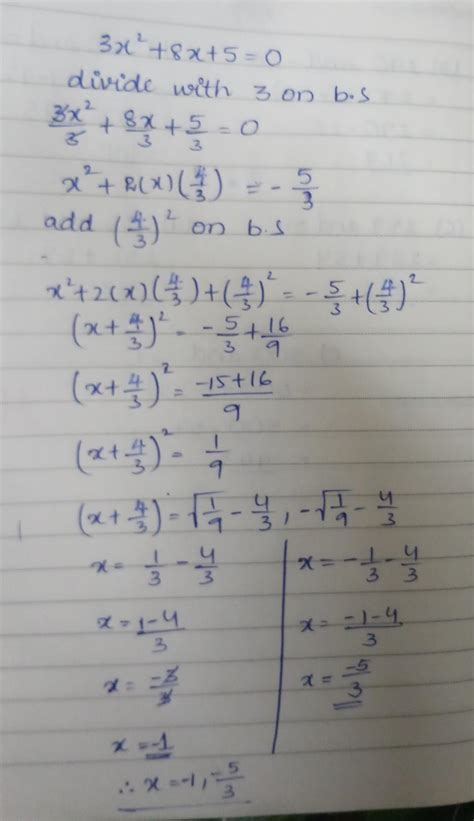 3x² + 8x + 5 = 0
divide with 3 on b.s
3x²/3 + 8x/3 + 5/3 = 0
x² + 2(x)(4/3) = - 5/3
add (4/3)² on b.s
x² + 2(x)(4/3) + (4/3)² = - 5/3 + (4/3)²
(x + 4/3)² = - 5/3 + 16/9
(x + 4/3)² = -15+16/9
(x + 4/3)² = 1/9
(x + 4/3) = √1/9 - 4/3, -√1/9 - 4/3
x = 1/3 - 4/3
x = 1-4/3
x = -3/3
x = -1
x = -1/3 - 4/3
x = -1-4/3
x = -5/3
∴ x = -1, -5/3